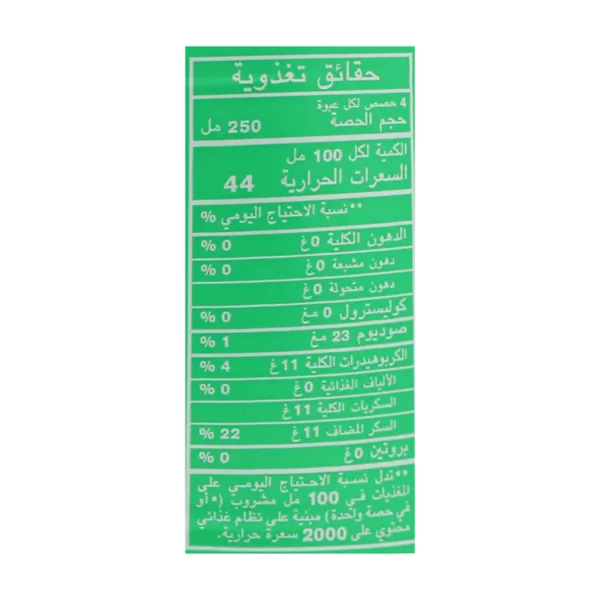 حقائق تغذوية
4 حصص لكل عبوة
حجم الحصة 250 مل
الكمية لكل 100 مل
السعرات الحرارية 44
**نسبة الاحتياج اليومي %
الدهون الكلية 0غ 0 %
دهون مشبعة 0غ 0 %
دهون متحولة 0غ
كوليسترول 0 مغ 0 %
صوديوم 23 مغ 1 %
الكربوهيدرات الكلية 11غ 4 %
الألياف الغذائية 0غ 0 %
السكريات الكلية 11غ
السكر المضاف 11غ 22 %
بروتين 0غ 0 %
**تدل نسبة الاحتياج اليومي على
المغذيات في 100 مل مشروب (*أو
في حصة واحدة) مبنية على نظام غذائي
محتوي على 2000 سعرة حرارية.